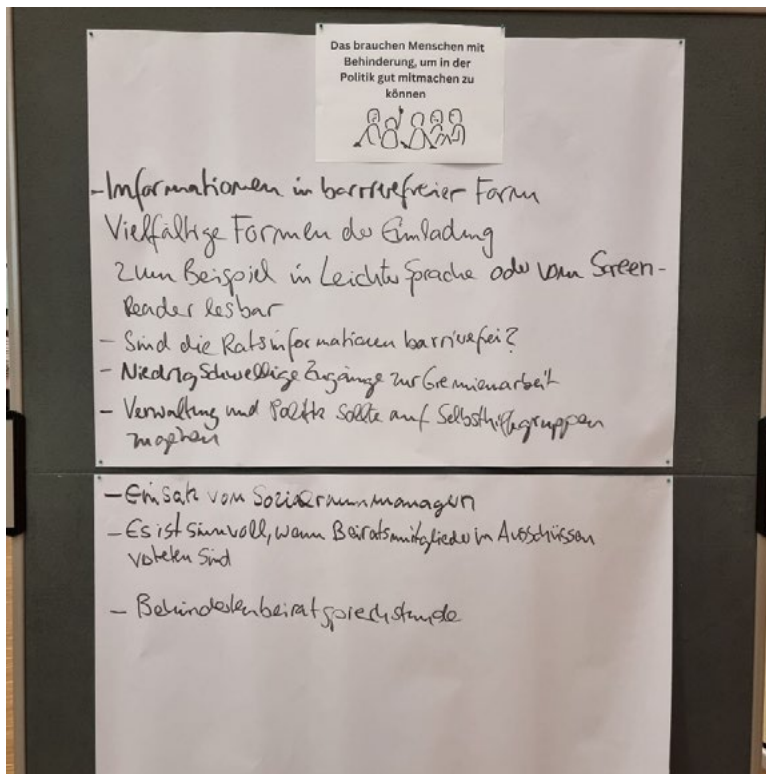 Das brauchen Menschen mit
Behinderung, um in der
Politik gut mitmachen zu
können
- Informationen in barrierefreier Form
Vielfältige Formen der Einladung
zum Beispiel in Leichter Sprache oder vom Screen-
Reader lesbar
- Sind die Ratsinformationen barrierefrei?
- Niedrigschwellige Zugänge zur Gremienarbeit
- Verwaltung und Politik sollte auf Selbsthilfegruppen
zugehen
- Einsatz von Sozialraummanagern
- Es ist sinnvoll, wenn Beiratsmitglieder in Ausschüssen
vertreten sind
- Behindertenbeiratsprechstunde